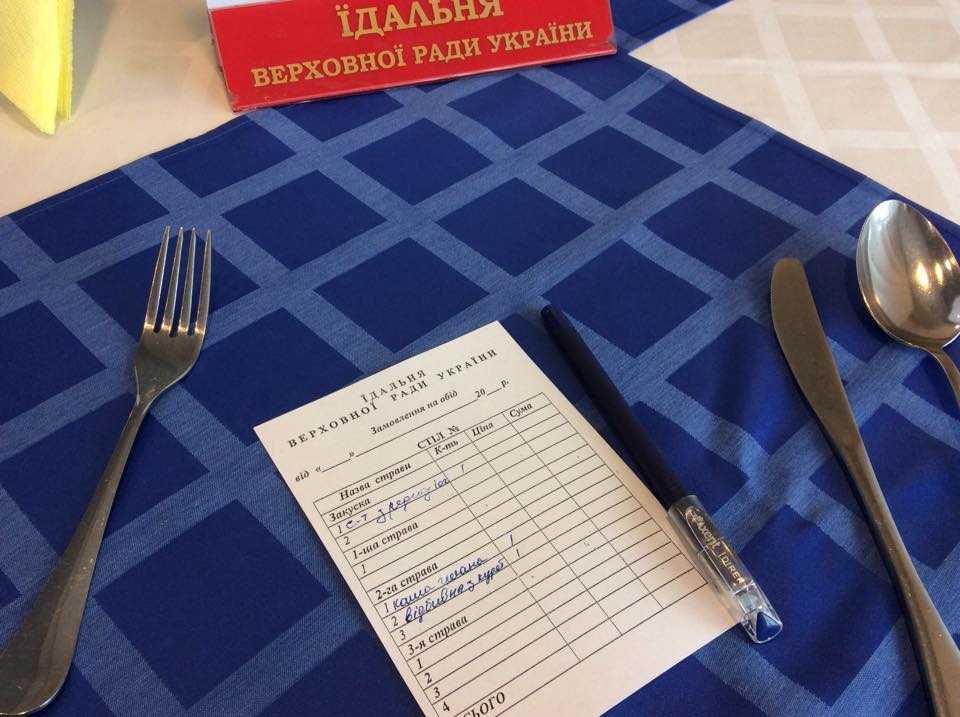 ЇДАЛЬНЯ
ВЕРХОВНОЇ РАДИ УКРАЇНИ
ЇДАЛЬНЯ
ВЕРХОВНОЇ РАДИ УКРАЇНИ
Замовлення на обід
від «____» ________ 20__ р.
СТІЛ №
Назва страви К-ть Ціна Сума
Закуска
1 с-т з 1
2
1-ша страва
1
2-га страва
1 каша 1
2 відбивна з курей 1
3
3-я страва
1
2
3
4
СЬОГО
Axent DIRE